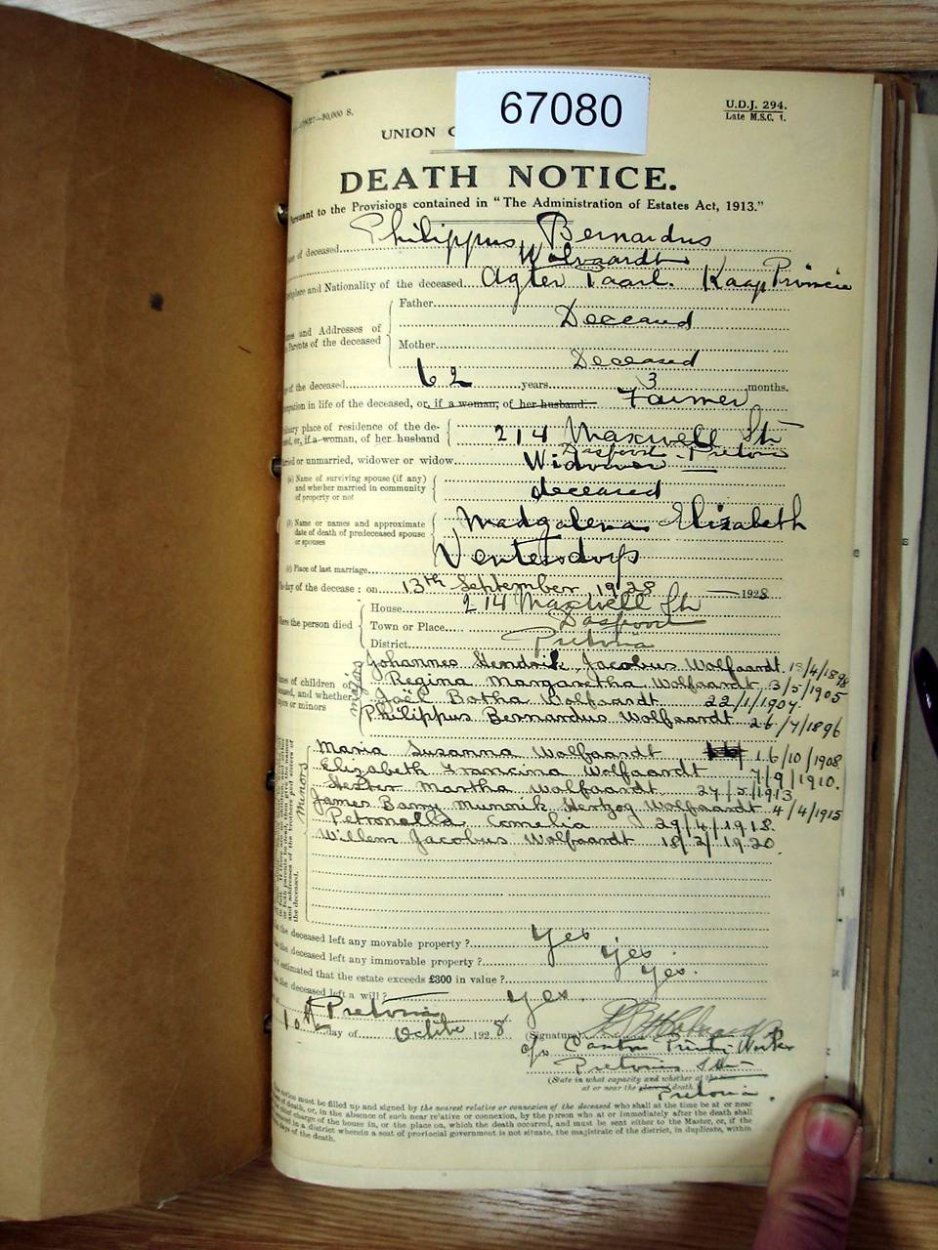 67080
U.D.J. 294.
Late M.S.C. 1.
UNION
DEATH NOTICE.
to the Provisions contained in "The Administration of Estates Act, 1913."
of deceased Philippus Bernardus
Wolvaardt
and Nationality of the deceased Agter Paarl. Kaap Provincie
Father Deceased
and Addresses of
Parents of the deceased
Mother Deceased
of the deceased 62 years 3 months.
in life of the deceased, or, if a woman, of her husband Farmer
place of residence of the de-
or, if a woman, of her husband 214 Maxwell Str
Daspoort Pretoria
or unmarried, widower or widow Widower
(a) Name of surviving spouse (if any)
and whether married in community
of property or not
deceased
(b) Name or names and approximate
date of death of predeceased spouse
or spouses
Madgalena Elizabeth
(c) Place of last marriage Ventersdorp
day of the decease: on 13th September 1928 1928
House 214 Maxwell Str
the person died
Town or Place Daspoort
District Pretoria
of children of
and whether
or minors
majors
Johannes Hendrik Jacobus Wolfaardt
Regina Margaretha Wolfaardt 3/5/1905
Joël Botha Wolfaardt 22/1/1907
Philippus Bernardus Wolfaardt 26/7/1896
Minors
Maria Susanna Wolfaardt 16/10/1908
Elizabeth Francina Wolfaardt 7/9/1910.
Hester Martha Wolfaardt 24/5/1913
James Barry Munnik Hertzog Wolfaardt 4/4/1915
Petronella Cornelia 29/4/1918.
Willem Jacobus Wolfaardt 18/2/1920.
and addresses of the brothers and sisters of
the deceased.
the deceased left any movable property? Yes
the deceased left any immovable property? yes.
estimated that the estate exceeds £300 in value? yes.
the deceased left a will? yes.
Pretoria
10 day of October 1928 (Signature)
c/o
Pretoria
(State in what capacity and whether
at or near the death.
Pretoria.
must be filled up and signed by the nearest relative or connexion of the deceased who shall at the time be at or near
of death, or, in the absence of such near relative or connexion, by the person who at or immediately after the death shall
charge of the house in, or the place on, which the death occurred, and must be sent either to the Master, or, if the
in a district wherein a seat of provincial government is not situate, the magistrate of the district, in duplicate, within
days of the death.